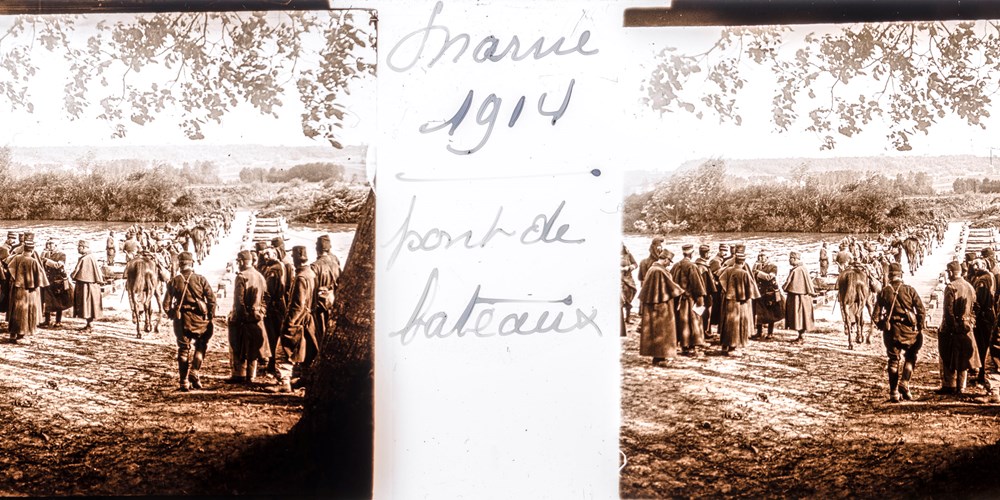 Marne
1914
pont de
bateaux